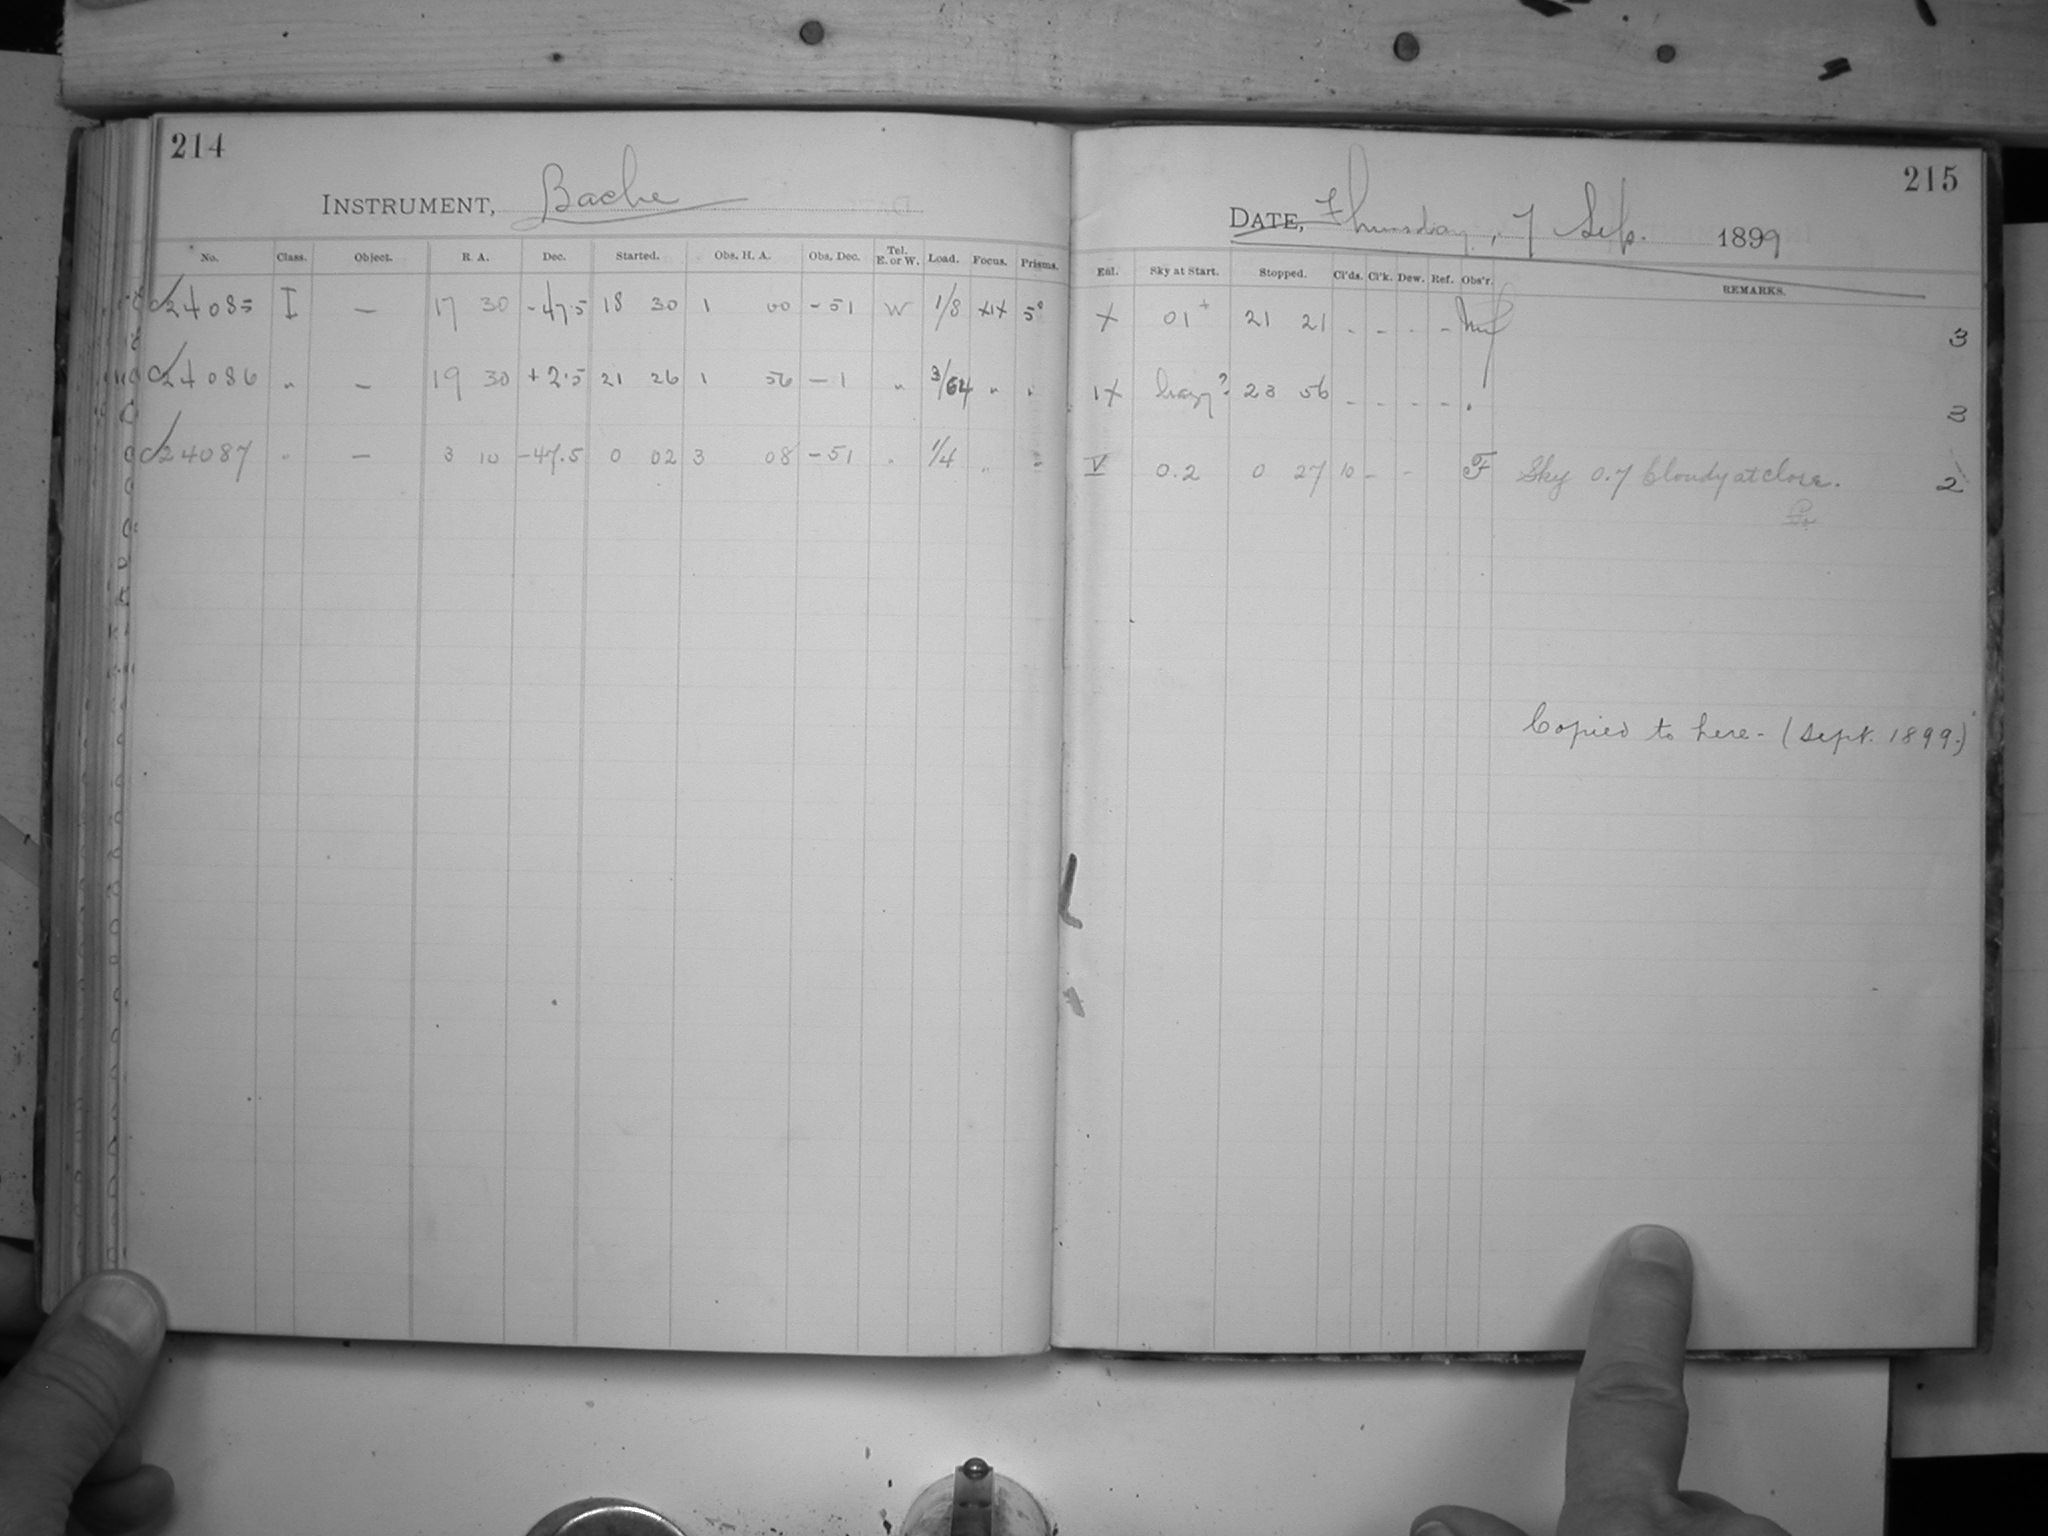 214
INSTRUMENT, Bache
No. Class. Object. R. A. Dec. Started. Obs. H. A. Obs. Dec. Tel. E. or W. Load. Focus. Prisms.
C24085 I — 17 30 -47.5 18 30 1 00 -51 W 1/8 5°
C24086 " — 19 30 +2.5 21 26 1 56 -1 " 3/64 " "
C24087 " — 3 10 -47.5 0 02 3 08 -51 " 1/4 " "
215
DATE, Thursday, 7 Sep. 1899
Eñl. Sky at Start. Stopped. Cl'ds. Cl'k. Dew. Ref. Obs'r. REMARKS.
X 01+ 21 21 - - - - 3
IX hazy? 23 56 - - - - " 3
V 0.2 0 27 10 - - F Sky 0.7 Cloudy at close. 2
Copied to here - (Sept. 1899.)